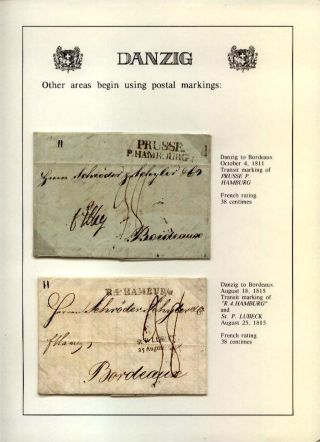 DANZIG
Other areas begin using postal markings:
PRUSSE
P. HAMBOURG
Herrn Schröder &
Bordeaux
Danzig to Bordeaux
October 4, 1811
Transit marking of
PRUSSE P.
HAMBURG
French rating
38 centimes
R.4.HAMBURG
Herren Schröder
ST. P. LUBECK
25 August
Bordeaux
Danzig to Bordeaux
August 18, 1815
Transit marking of
"R.4.HAMBURG"
and
St. P. LUBECK
August 25, 1815
French rating
38 centimes